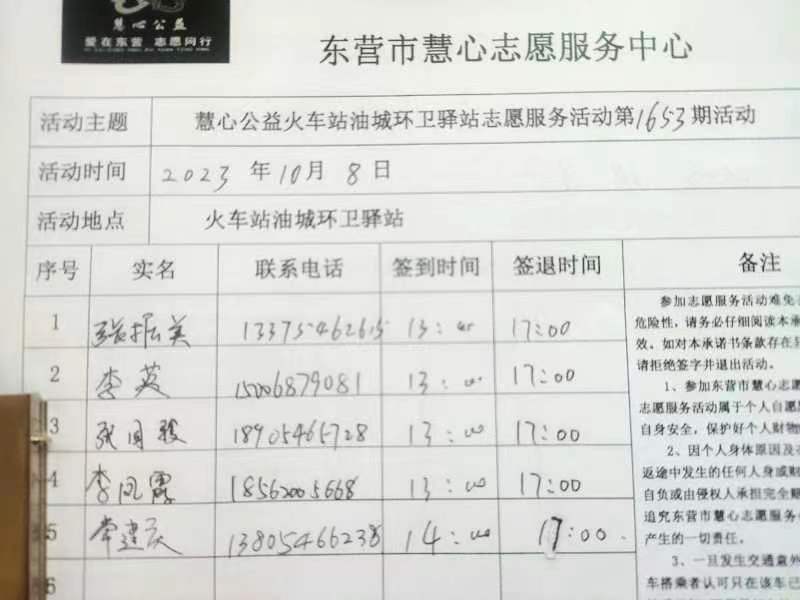 慧心公益
爱在东营 志愿同行
东营市慧心志愿服务中心
活动主题 慧心公益火车站油城环卫驿站志愿服务活动第1653期活动
活动时间 2023 年 10 月 8 日
活动地点 火车站油城环卫驿站
序号 实名 联系电话 签到时间 签退时间 备注
1 张振美 13375462615 13:00 17:00
2 李英 15006879081 13:00 17:00
3 张国骏 18905465728 13:00 17:00
4 李凤霞 18562005668 13:00 17:00
5 常建庆 13805466238 14:00 17:00
6
参加志愿服务活动难免
危险性,请务必仔细阅读本承
效。如对本承诺书条款存在
请拒绝签字并退出活动。
1、参加东营市慧心志愿
志愿服务活动属于个人自愿
自身安全,保护好个人财物
2、因个人身体原因及在
返途中发生的任何人身或财
自负或由侵权人承担完全赔
追究东营市慧心志愿服务
产生的一切责任。
3、一旦发生交通意外
车搭乘者认可只在该车已